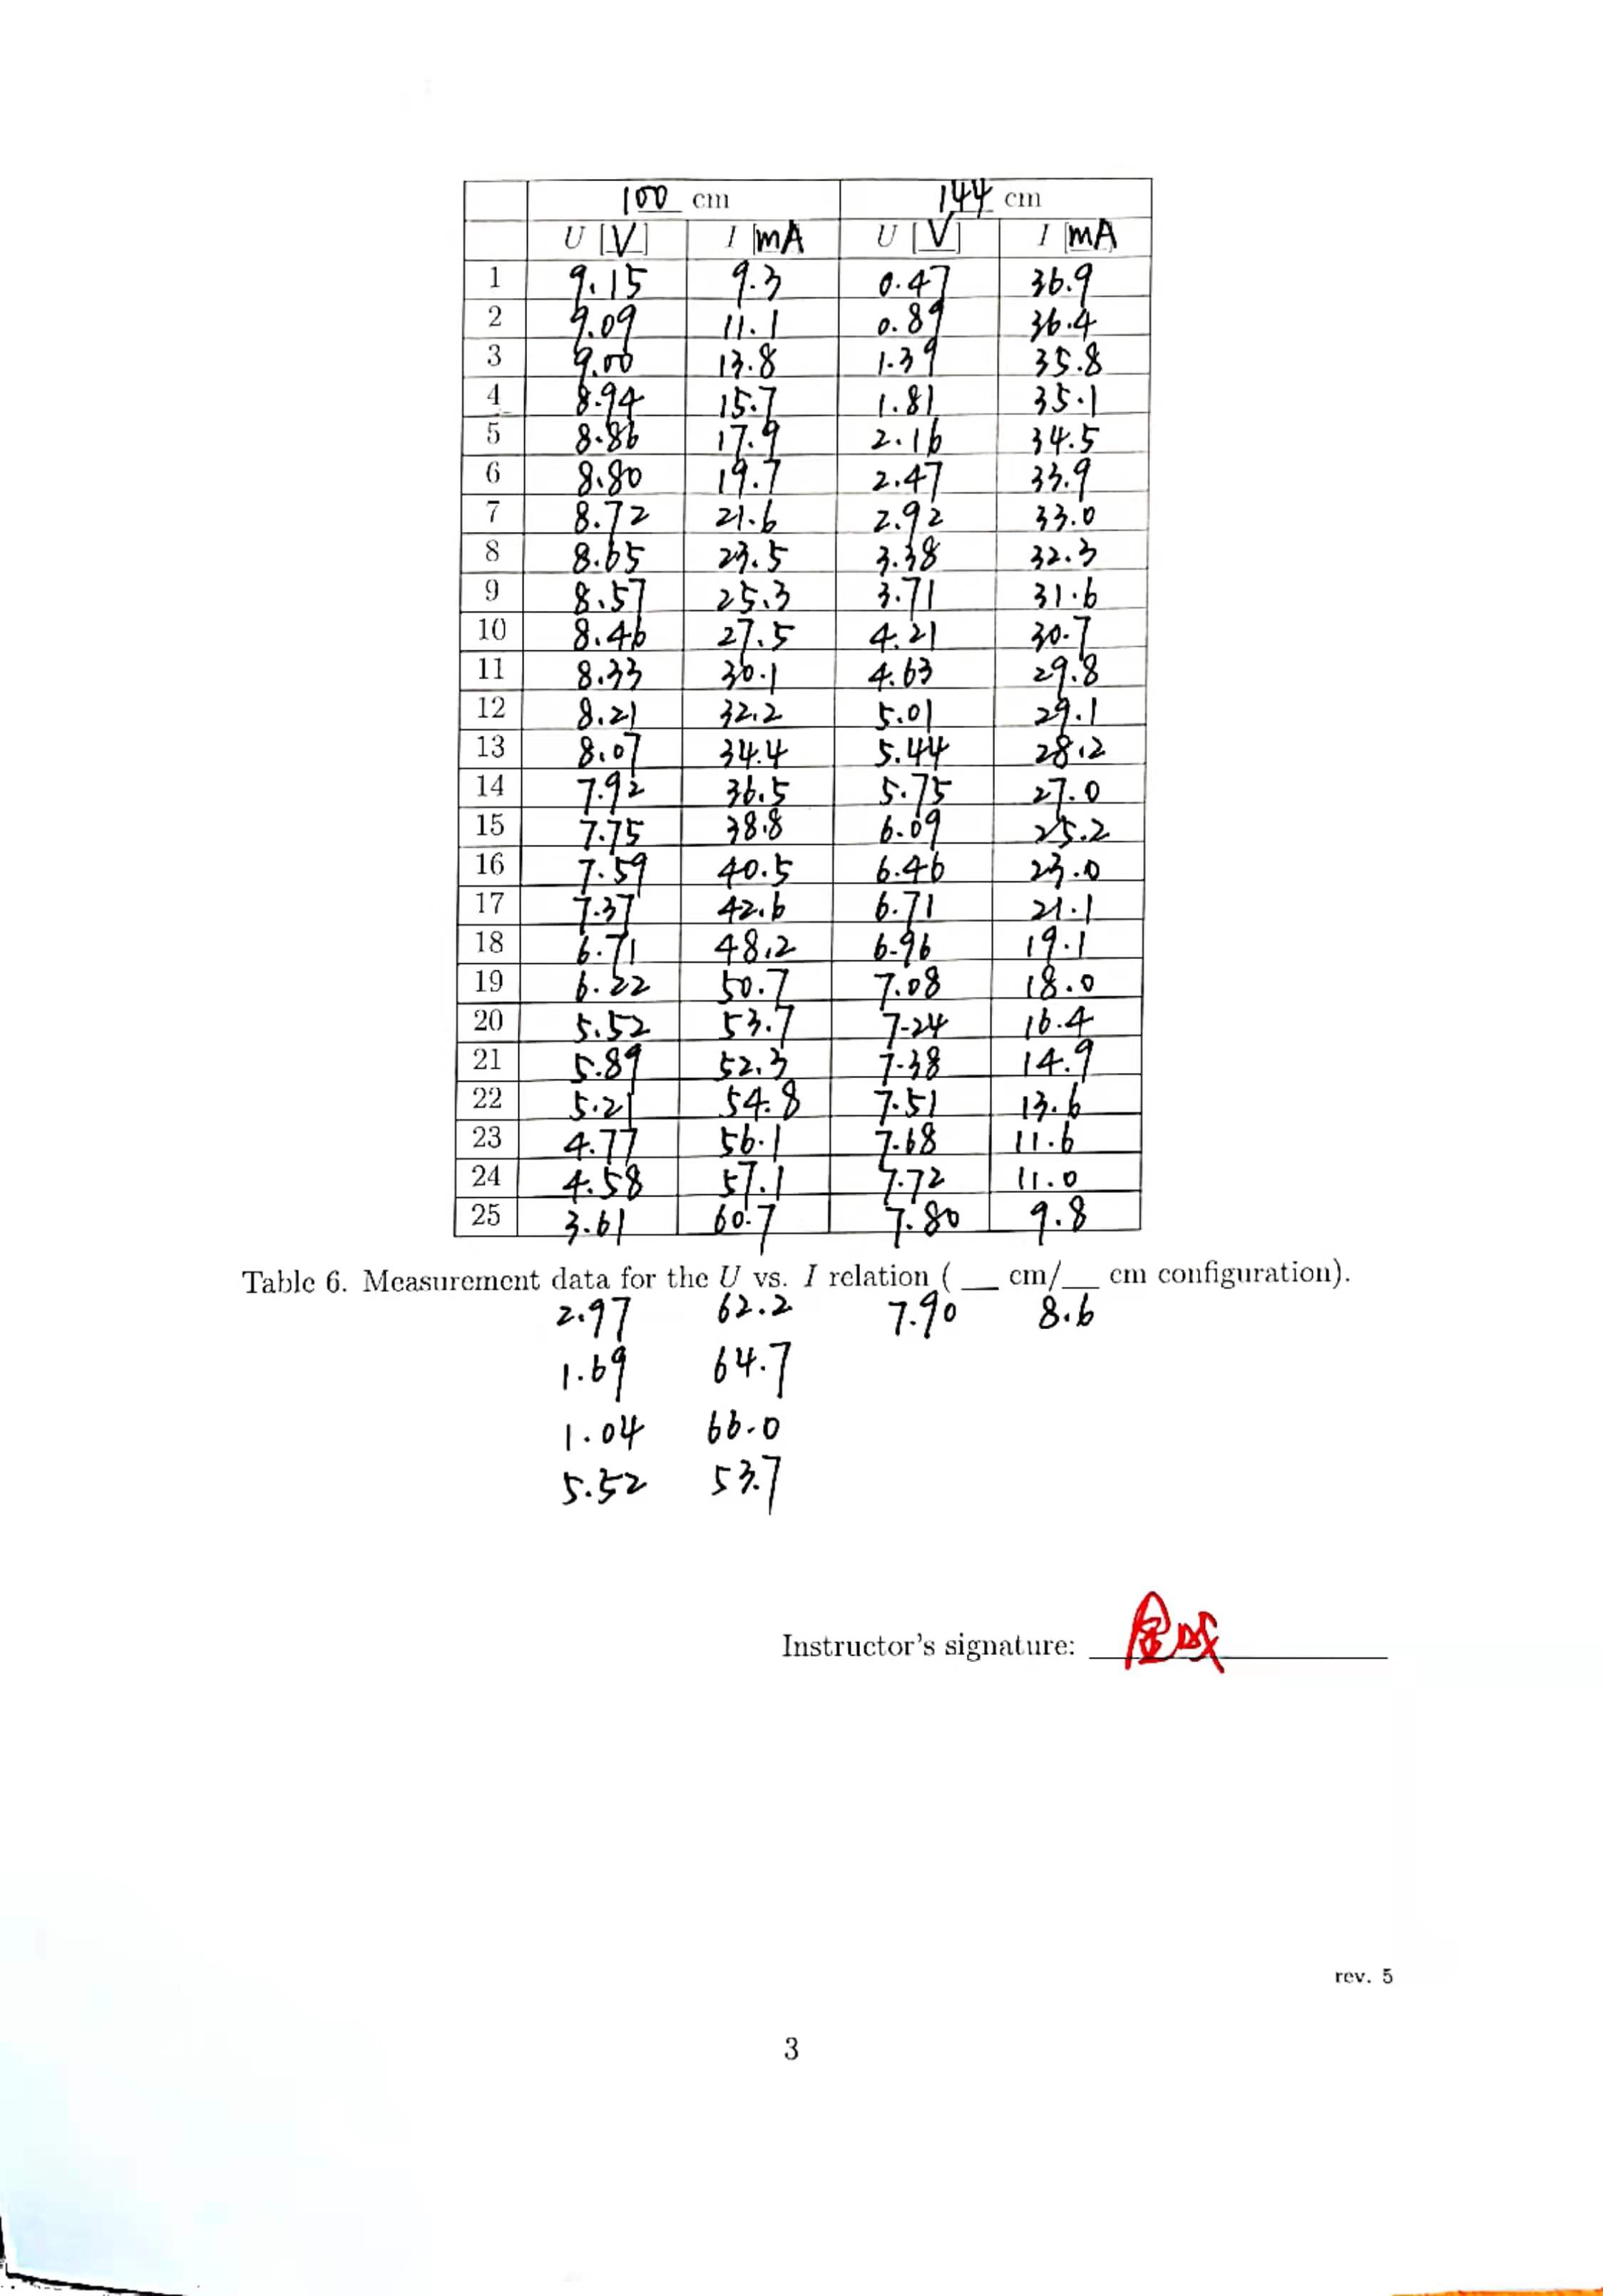 100 cm 144 cm
U [V] I [mA] U [V] I [mA]
1 9.15 9.3 0.47 36.9
2 9.09 11.1 0.89 36.4
3 9.00 13.8 1.39 35.8
4 8.94 15.7 1.81 35.1
5 8.86 17.9 2.16 34.5
6 8.80 19.7 2.47 33.9
7 8.72 21.6 2.92 33.0
8 8.65 23.5 3.38 32.3
9 8.57 25.3 3.71 31.6
10 8.46 27.5 4.21 30.7
11 8.33 30.1 4.63 29.8
12 8.21 32.2 5.01 29.1
13 8.07 34.4 5.44 28.2
14 7.92 36.5 5.75 27.0
15 7.75 38.8 6.09 25.2
16 7.59 40.5 6.46 23.0
17 7.37 42.6 6.71 21.1
18 6.71 48.2 6.96 19.1
19 6.22 50.7 7.08 18.0
20 5.52 53.7 7.24 16.4
21 5.89 52.3 7.38 14.9
22 5.21 54.8 7.51 13.6
23 4.77 56.1 7.68 11.6
24 4.58 57.1 7.72 11.0
25 3.61 60.7 7.80 9.8
Table 6. Measurement data for the U vs. I relation ( __ cm/__ cm configuration).
2.97 62.2 7.90 8.6
1.69 64.7
1.04 66.0
5.52 53.7
Instructor's signature:
rev. 5
3